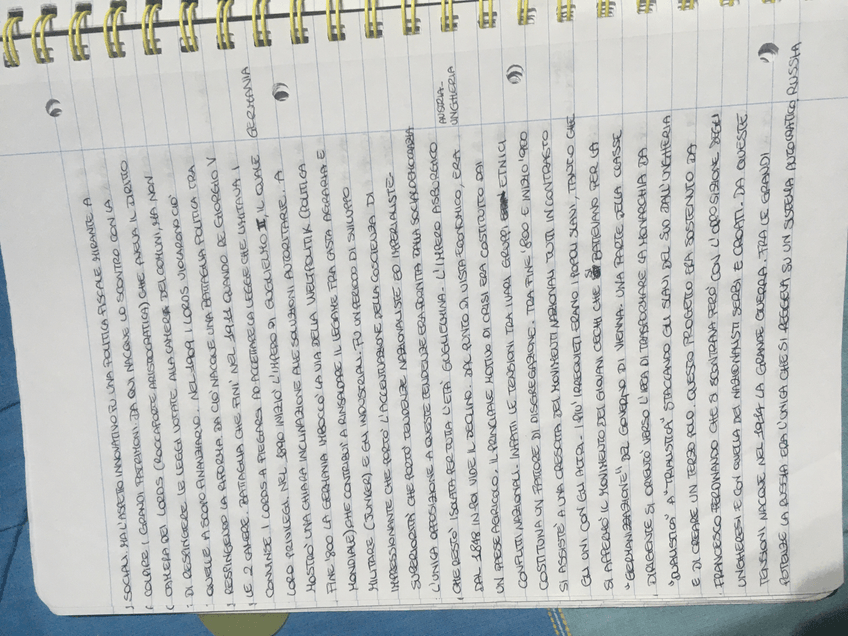 SOCIALI. MA L'ASPETTO INNOVATIVO FU UNA POLITICA FISCALE MIRANTE A
COLPIRE I GRANDI PATRIMONI. DA QUI NACQUE LO SCONTRO CON LA
CAMERA DEI LORDS (ROCCAFORTE ARISTOCRATICA) CHE AVEVA IL DIRITTO
DI RESPINGERE LE LEGGI VOTATE ALLA CAMERA DEI COMUNI, MA NON
QUELLE A SCOPO FINANZIARIO. NEL 1909 I LORDS VIOLARONO CIÒ
RESPINGENDO LA RIFORMA. DA CIÒ NACQUE UNA BATTAGLIA POLITICA TRA
LE 2 CAMERE. BATTAGLIA CHE FINÌ NEL 1911 QUANDO RE GIORGIO V
CONVINSE I LORDS A PIEGARSI AD ACCETTARE LA LEGGE CHE LIMITAVA I
LORO PRIVILEGI. NEL 1890 INIZIÒ L'IMPERO DI GUGLIELMO II, IL QUALE GERMANIA
MOSTRÒ UNA CHIARA INCLINAZIONE ALLE SOLUZIONI AUTORITARIE. A
FINE '800 LA GERMANIA IMBOCCÒ LA VIA DELLA WELTPOLITIK (POLITICA
MONDIALE), CHE CONTRIBUÌ A RINSALDARE IL LEGAME FRA CASTA AGRARIA E
MILITARE (JUNKER) E GLI INDUSTRIALI. FU UN PERIODO DI SVILUPPO
IMPRESSIONANTE CHE PORTÒ L'ACCENTUAZIONE DELLA COSCIENZA DI
SUPERIORITÀ CHE PORTÒ TENDENZE NAZIONALISTE ED IMPERIALISTE.
L'UNICA OPPOSIZIONE A QUESTE TENDENZE ERA FORNITA DALLA SOCIALDEMOCRAZIA
CHE RESTÒ ISOLATA PER TUTTA L'ETÀ GUGLIELMINA. L'IMPERO ASBURGICO AUSTRIA-UNGHERIA
DAL 1848 IN POI VIDE IL DECLINO. DAL PUNTO DI VISTA ECONOMICO, ERA
UN PAESE AGRICOLO. IL PRINCIPALE MOTIVO DI CRISI ERA COSTITUITO DAI
CONFLITTI NAZIONALI. INFATTI LE TENSIONI TRA I VARI GRUPPI ETNICI
COSTITUIVA UN FATTORE DI DISGREGAZIONE. TRA FINE '800 E INIZIO '900
SI ASSISTÉ A UNA CRESCITA DEI MOVIMENTI NAZIONALI TUTTI IN CONTRASTO
GLI UNI CON GLI ALTRI. I PIÙ IRREQUIETI ERANO I POPOLI SLAVI, TANTO CHE
SI AFFERMÒ IL MOVIMENTO DEI GIOVANI CECHI CHE SI BATTEVANO PER LA
"GERMANIZZAZIONE" DEL GOVERNO DI VIENNA. UNA PARTE DELLA CLASSE
DIRIGENTE SI ORIENTÒ VERSO L'IDEA DI TRASFORMARE LA MONARCHIA DA
"DUALISTICA" A "TRIALISTICA" STACCANDO GLI SLAVI DEL SUD DALL'UNGHERIA
E DI CREARE UN TERZO POLO. QUESTO PROGETTO ERA SOSTENUTO DA
FRANCESCO FERDINANDO CHE SI SCONTRAVA PERÒ CON L'OPPOSIZIONE DEGLI
UNGHERESI E CON QUELLA DEI NAZIONALISTI SERBI E CROATI. DA QUESTE
TENSIONI NACQUE NEL 1914 LA GRANDE GUERRA. TRA LE GRANDI
POTENZE LA RUSSIA ERA L'UNICA CHE SI REGGEVA SU UN SISTEMA AUTOCRATICO, RUSSIA